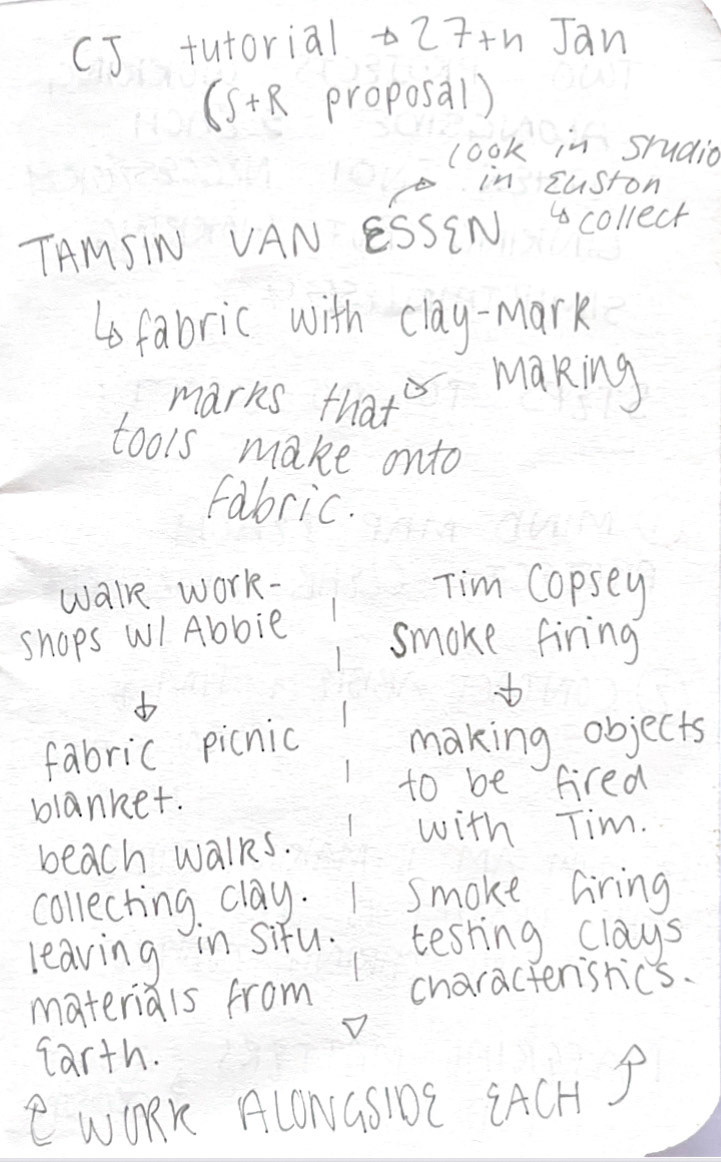 CJ tutorial → 27th Jan
(S+R proposal)
look in studio
in Euston
↳ collect
TAMSIN VAN ESSEN
↳ fabric with clay-mark
making
marks that
tools make onto
fabric.
walk work-
shops w/ Abbie
↓
fabric picnic
blanket.
beach walks.
collecting clay.
leaving in situ.
materials from
Earth.
Tim Copsey
smoke firing
↓
making objects
to be fired
with Tim.
smoke firing
testing clays
characteristics.
↑ WORK ALONGSIDE EACH ↑